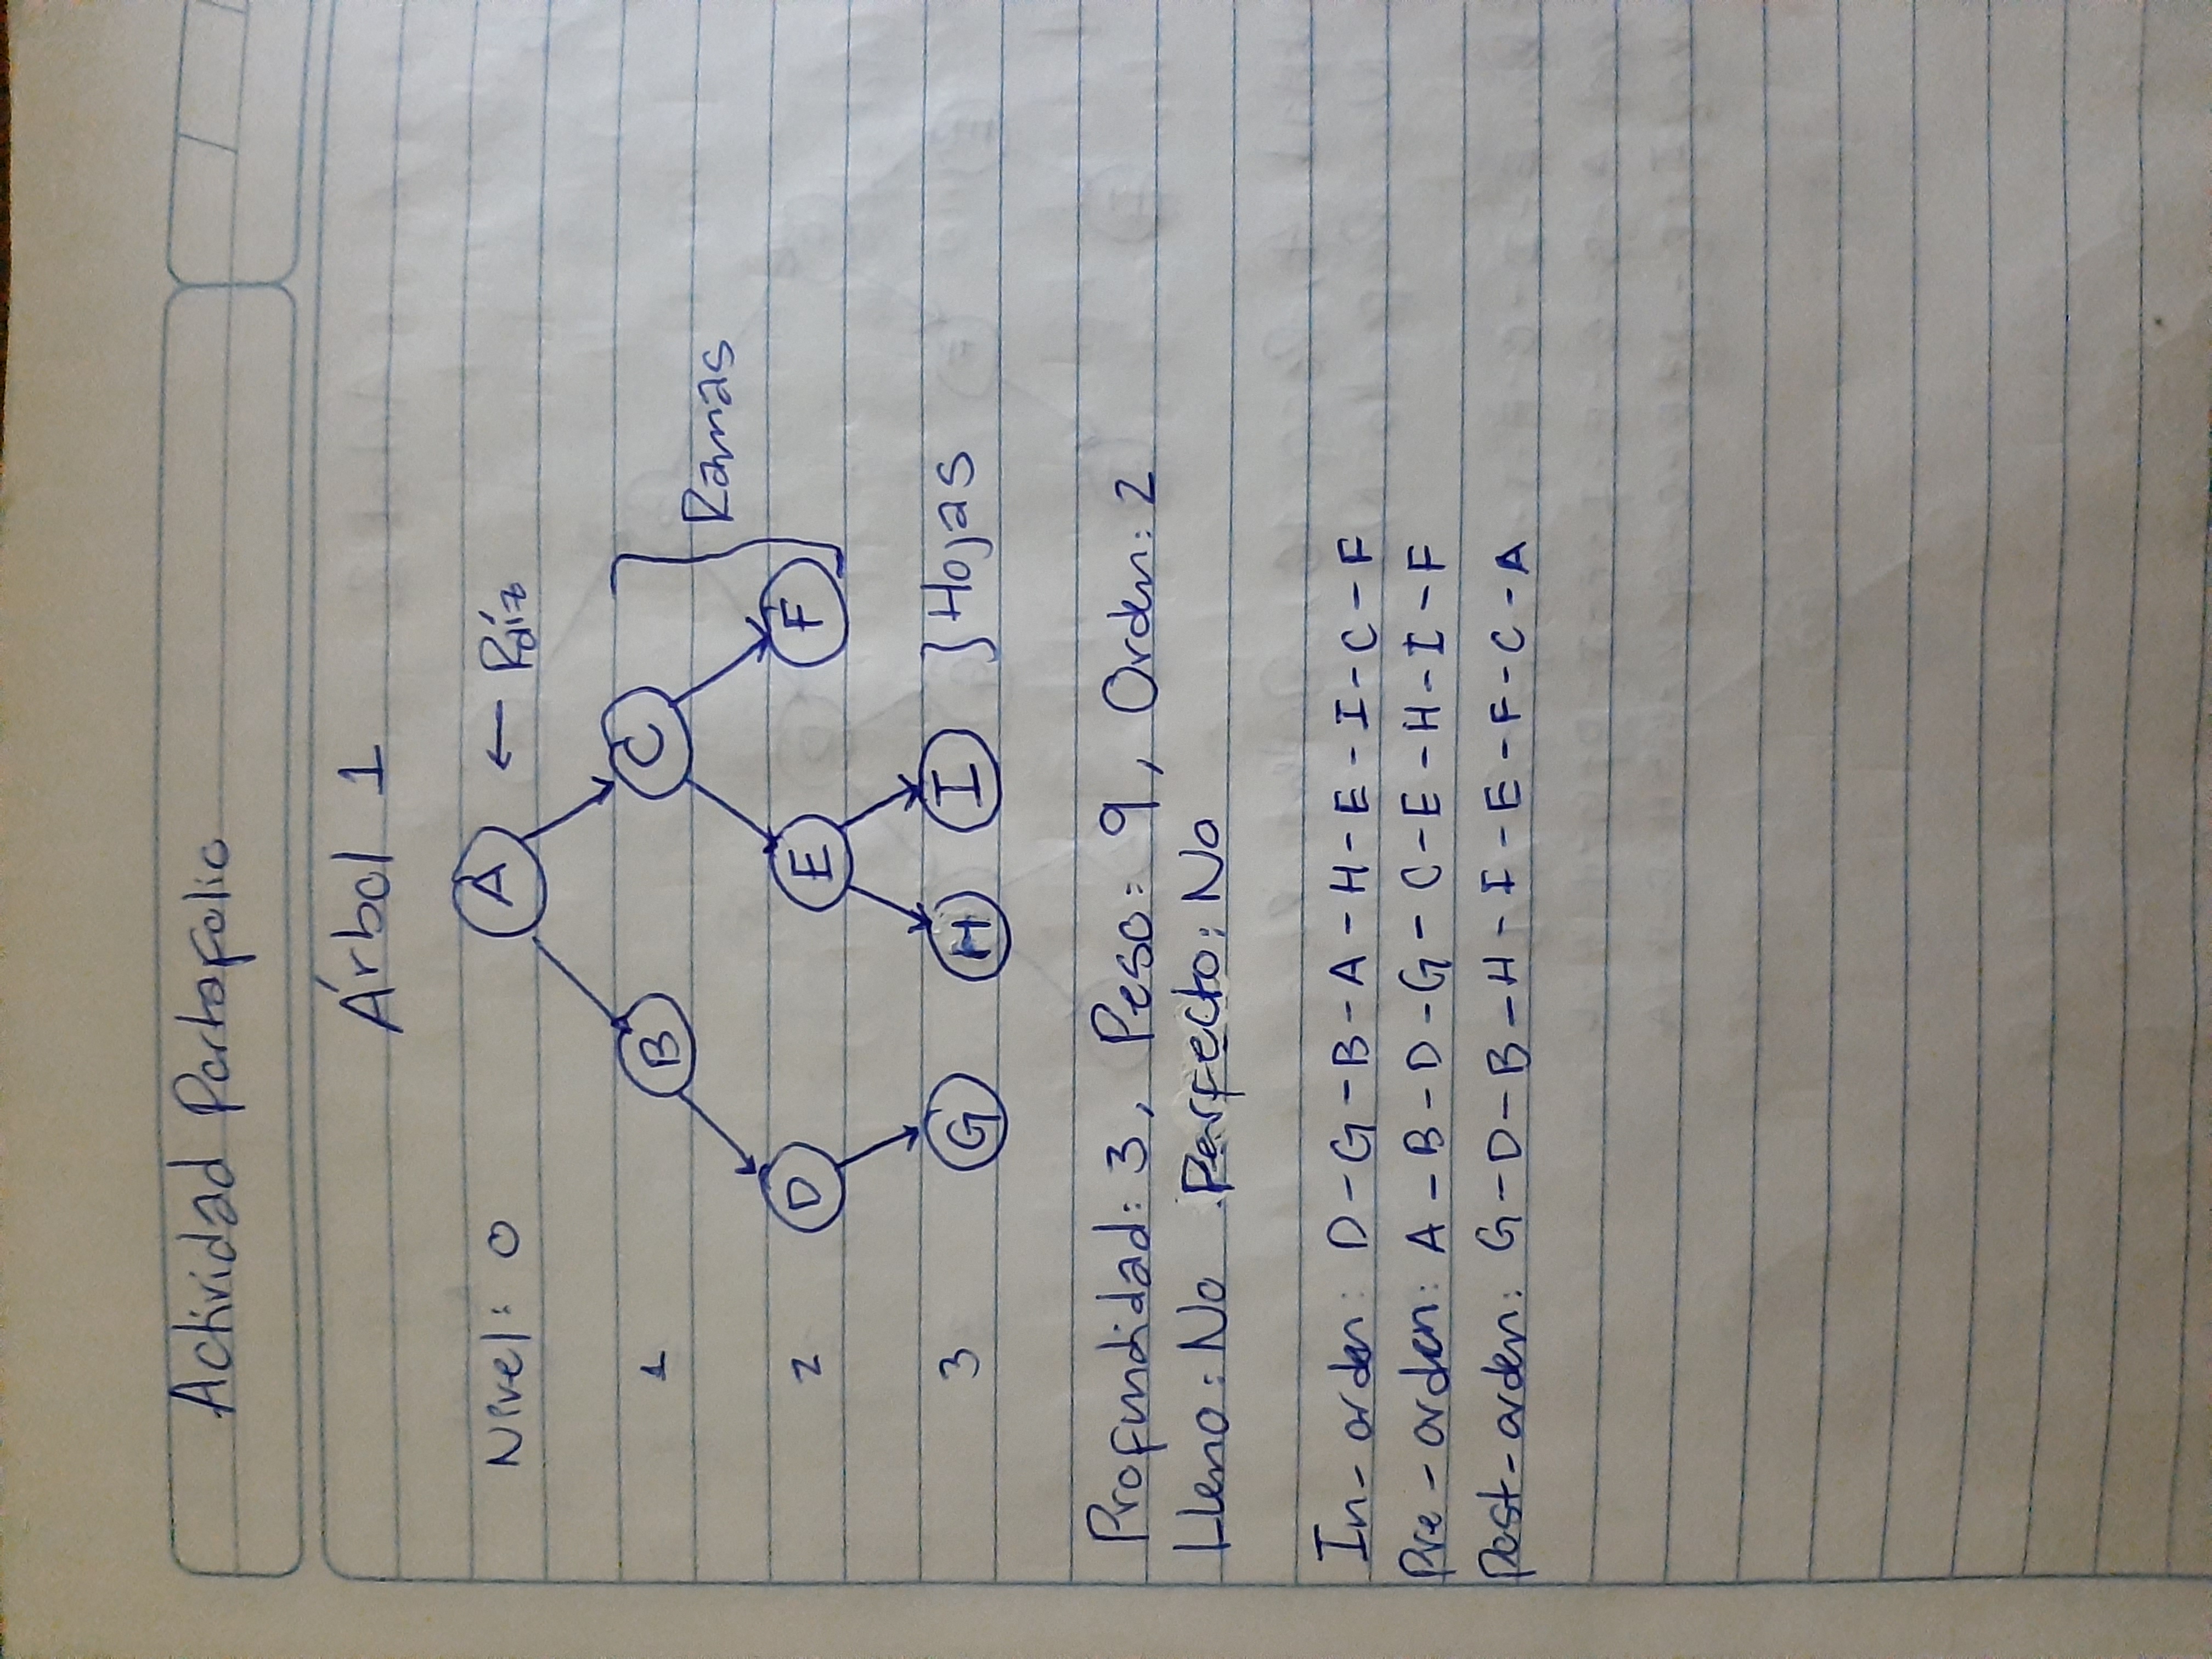 Actividad Portafolio
Árbol 1
Nivel: 0 A ← Raíz
1 B C
Ramas
2 D E F
3 G H I } Hojas
Profundidad: 3, Peso: 9, Orden: 2
Lleno: No Perfecto: No
In-orden: D-G-B-A-H-E-I-C-F
Pre-orden: A-B-D-G-C-E-H-I-F
Post-orden: G-D-B-H-I-E-F-C-A